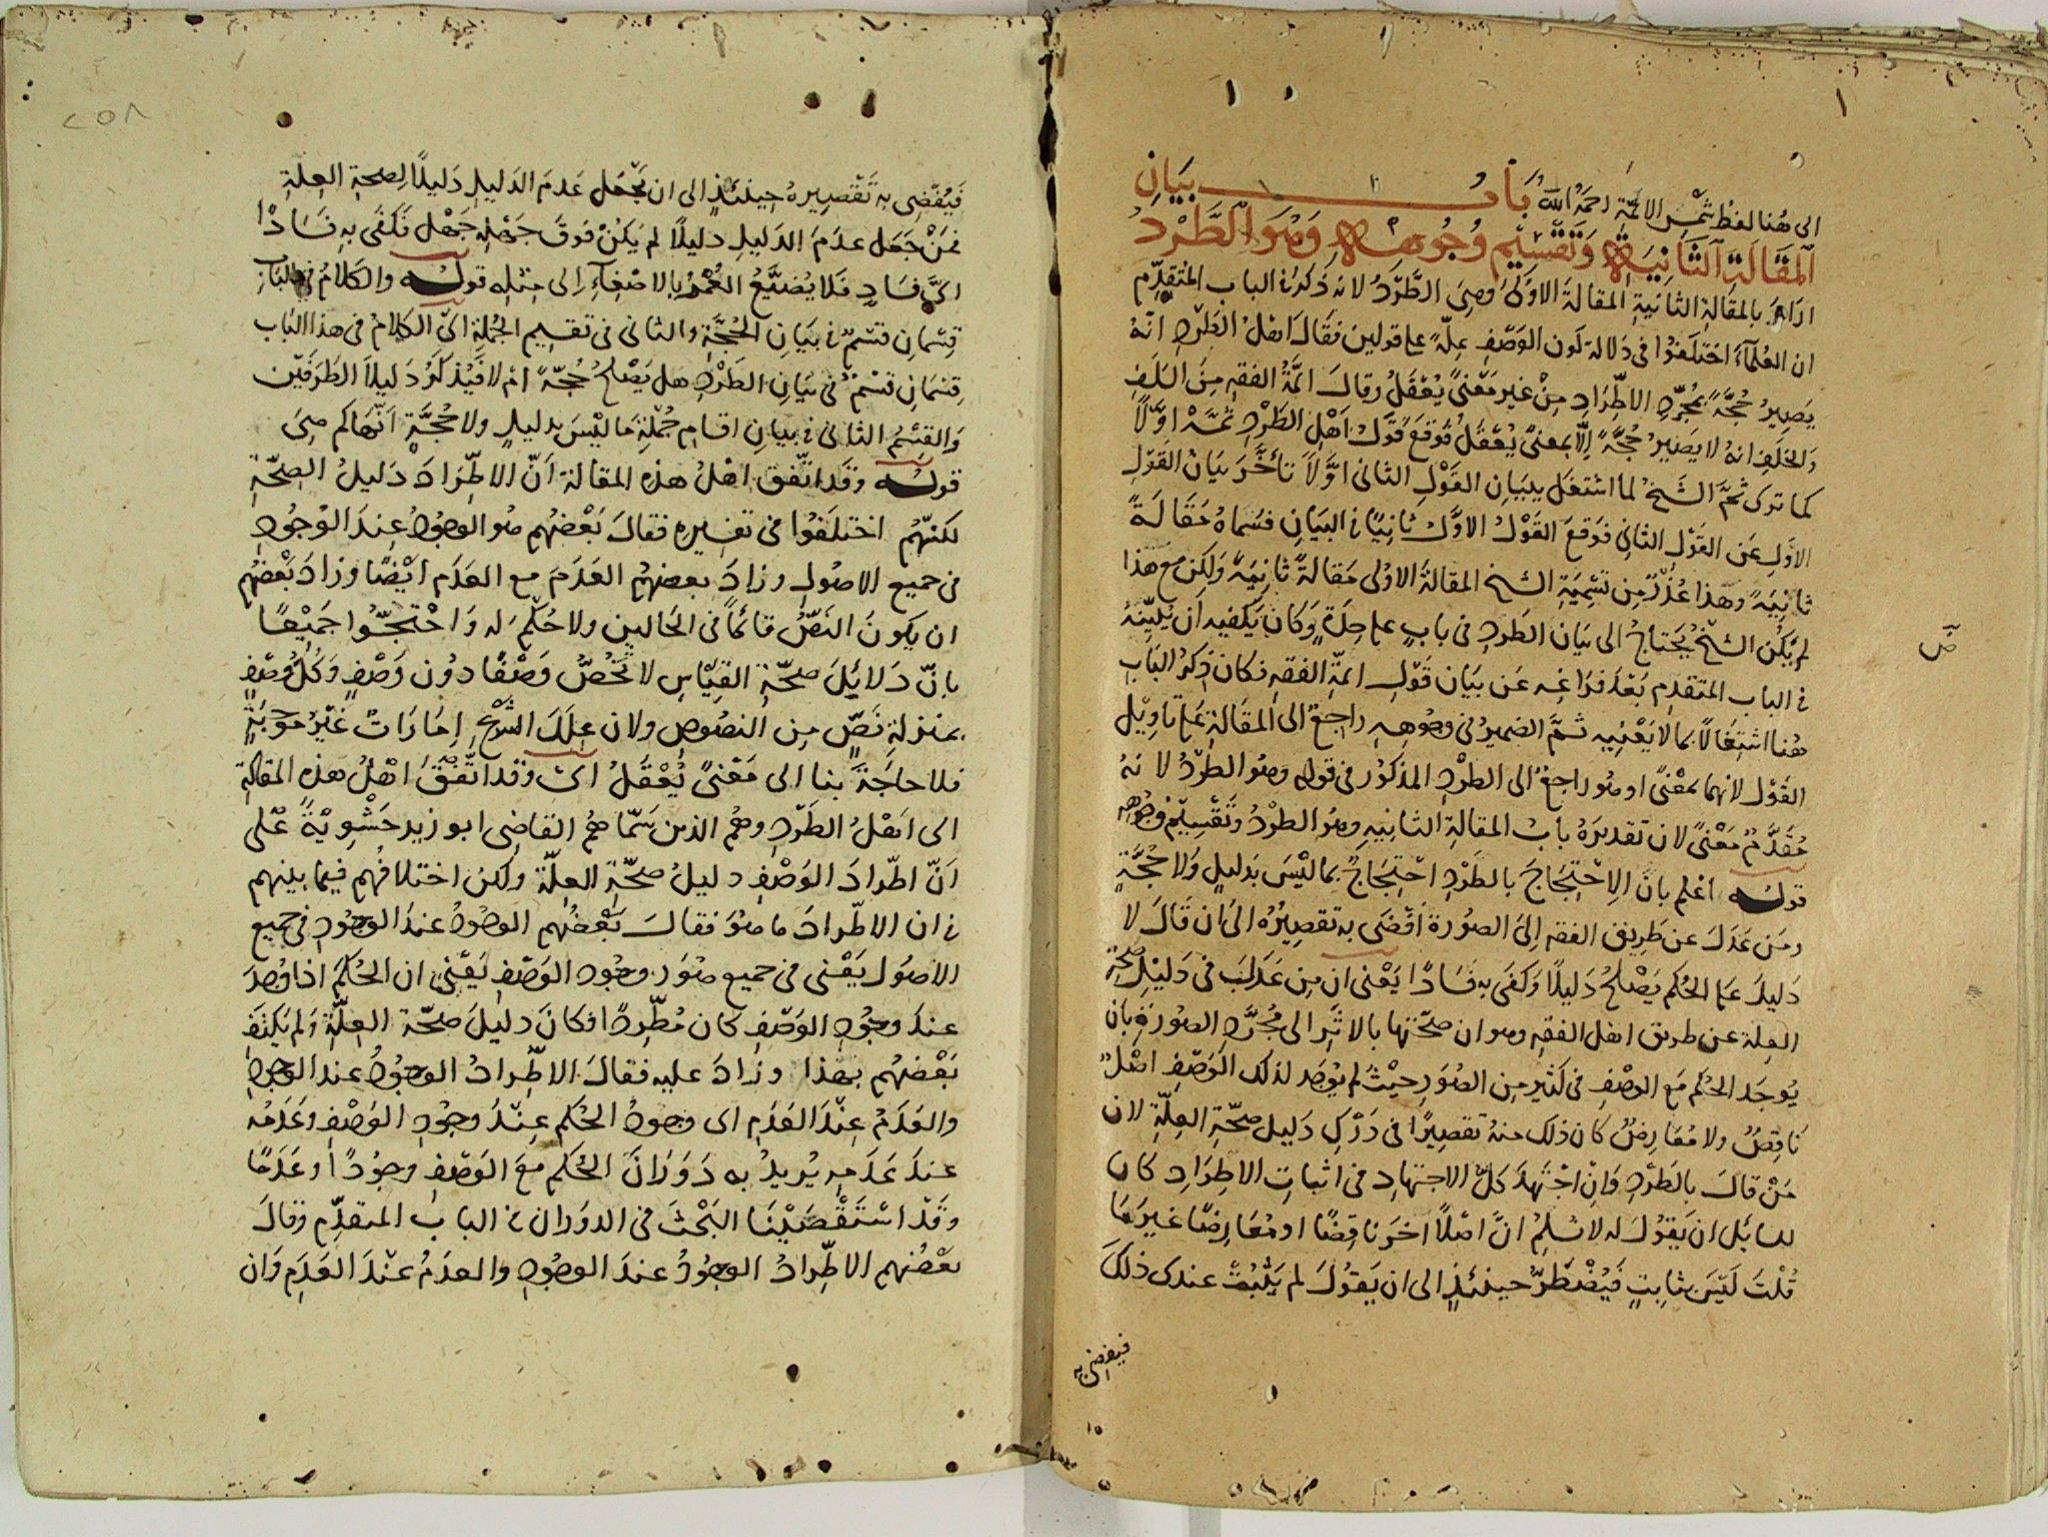 الى هنا لفظ شمس الائمة رحمه الله باب بيان
المقالة الثانية وتقسيم وجوهه وهو الطرد
اراد بالمقالة الثانية المقالة الاولى وهي الطرد لانه ذكر في الباب المتقدم
ان العلماء اختلفوا في دلالة كون الوصف علة على قولين فقال اهل الطرد انه
يصير حجة بمجرد الاطراد من غير معنى يعقل وقال ائمة الفقه من السلف
والخلف انه لا يصير حجة الا بمعنى يعقل فوقع قول اهل الطرد ثمه اولا
كما ترى ثم الشيخ لما اشتغل ببيان القول الثاني اولا تأخر بيان القول
الاول عن القول الثاني فوقع القول الاول ثانيا في البيان فسماه مقالة
ثانية وهذا عذر من تسمية الشيخ المقالة الاولى مقالة ثانية ولكن مع هذا
لم يكن الشيخ يحتاج الى بيان الطرد في باب على حدة وكان يكفيه ان يبينه
في الباب المتقدم بعد فراغه عن بيان قول ائمة الفقه فكان ذكر الباب
هنا اشتغالا بما لا يعنيه ثم الضمير في وجوهه راجع الى المقالة على تاويل
القول لانهما بمعنى او هو راجع الى الطرد المذكور في قوله وهو الطرد لانه
مقدم معنى لان تقديره باب المقالة الثانية وهو الطرد وتقسيم وجوهه
قوله اعلم بان الاحتجاج بالطرد احتجاج بما ليس بدليل ولا حجة
ومن عدل عن طريق الفقه الى الصورة افضى به تقصيره الى ان قال لا
دليل على الحكم يصلح دليلا وكفى به فسادا يعني ان من عدل في دليل صحة
العلة عن طريق اهل الفقه وهو ان صحتها بالاثر الى مجرد الصورة بان
يوجد الحكم مع الوصف في كثير من الصور حيث لم يوجد لذلك الوصف اصل
ناقض ولا معارض كان ذلك منه تقصيرا في درك دليل صحة العلة لان
من قال بالطرد وان اجتهد كل الاجتهاد في اثبات الاطراد كان
لسائل ان يقول له لا نسلم ان اصلا اخر ناقضا او معارضا غير ما
قلت ليس بثابت فيضطر حينئذ الى ان يقول لم يثبت عندي ذلك
فيفضي به
ض
٢٥٨
فيفضي به تقصيره حينئذ الى ان يجعل عدم الدليل دليلا لصحة العلة
فمن جعل عدم الدليل دليلا لم يكن فوق جهله جهل فكفى به فسادا
اي فساد فلا يضيع العمر بالاصغاء الى مثله قوله والكلام في الباب
قسمان قسم في بيان الحجة والثاني في تقسيم الجملة اي الكلام في هذا الباب
قسمان قسم في بيان الطرد هل يصلح حجة ام لا فيذكر دليلا الطرفين
والقسم الثاني في بيان اقسام جملة ما ليس بدليل ولا حجة انها كم هي
قوله وقد اتفق اهل هذه المقالة ان الاطراد دليل الصحة
لكنهم اختلفوا في تفسيره فقال بعضهم هو الوجود عند الوجود
في جميع الاصول وزاد بعضهم العدم مع العدم ايضا وزاد بعضهم
ان يكون النص قائما في الحالين ولا حكم له واحتجوا جميعا
بان دلايل صحة القياس لا تخص وصفا دون وصف وكل وصف
بمنزلة نص من النصوص ولان علل الشرع امارات غير موجبة
فلا حاجة بنا الى معنى يعقل اي وقد اتفق اهل هذه المقالة
اي اهل الطرد وهم الذين سماهم القاضي ابو زيد حشوية على
ان اطراد الوصف دليل صحة العلة ولكن اختلافهم فيما بينهم
في ان الاطراد ما هو فقال بعضهم الوجود عند الوجود في جميع
الاصول يعني في جميع صور وجود الوصف يعني ان الحكم اذا وجد
عند وجود الوصف كان مطردا فكان دليل صحة العلة ولم يكتف
بعضهم بهذا وزاد عليه فقال الاطراد الوجود عند الوجود
والعدم عند العدم اي وجود الحكم عند وجود الوصف وعدمه
عند عدمه يريد به دوران الحكم مع الوصف وجودا وعدما
وقد استقصينا البحث في الدوران في الباب المتقدم وقال
بعضهم الاطراد الوجود عند الوجود والعدم عند العدم وان